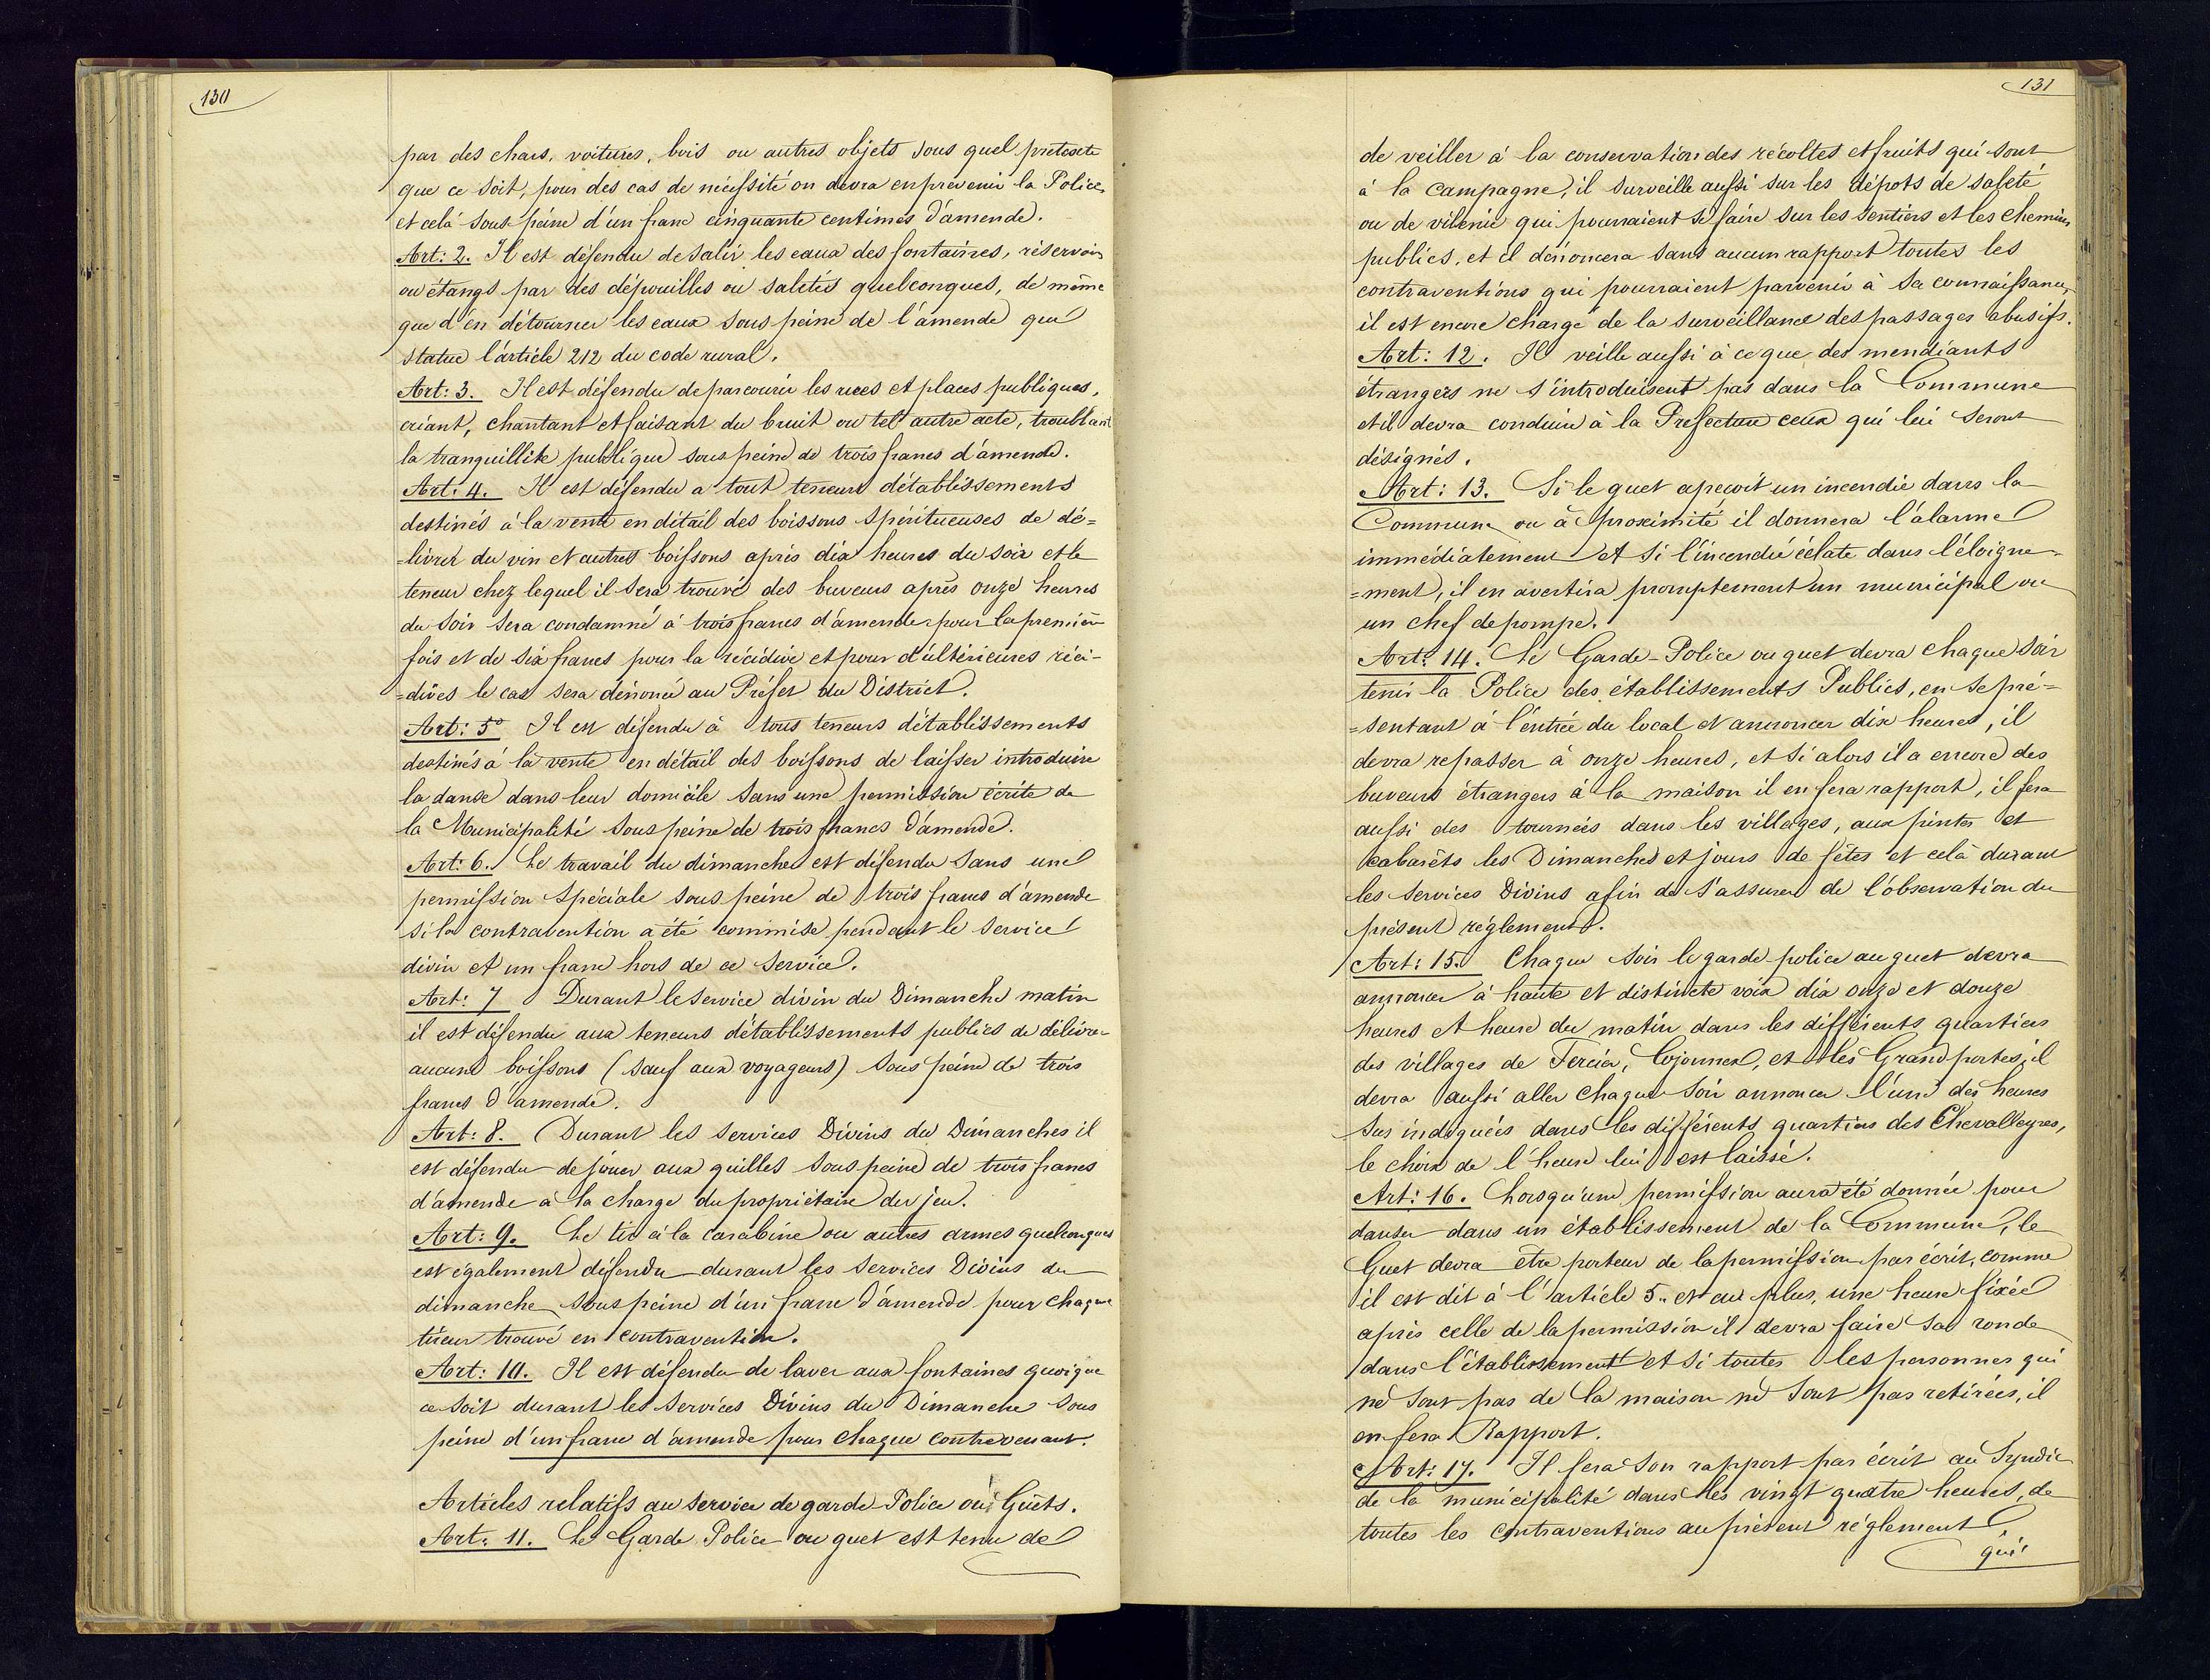 130
par des chars, voitures, bois ou autres objets sous quel pretexte
que ce soit, pour des cas de nécessité on devra en prevenir la Police,
et celà sous peine d'un franc cinquante centimes d'amende.
Art: 2. Il est défendu de salir les eaux des fontaines, réservoirs
ou étangs par des dépouilles ou saletés quelconques, de même
que d'en détourner les eaux sous peine de l'amende que
statue l'article 212 du code rural.
Art: 3. Il est défendu de parcourir les rues et places publiques,
criant, chantant et faisant du bruit ou tel autre acte, troublant
la tranquillite publique sous peine de trois francs d'amende.
Art: 4. Il est défendu a tout teneur d'établissements
destinés à la vente en détail des boissons spiritueuses de dé=
=livrer du vin et autres boissons après dix heures du soir et le
teneur chez lequel il sera trouvé des buveurs après onze heures
du soir sera condamné à trois francs d'amende pour la première
fois et de six francs pour la récidive et pour d'ultérieures réci-
=dives le cas sera dénoncé au Préfet du District.
Art: 5° Il est défendu à tous teneurs d'établissements
destinés à la vente en détail des boissons de laisser introduire
la danse dans leur domicile sans une permission écrite de
la Municipalité sous peine de trois francs d'amende.
Art: 6. Le travail du dimanche est défendu sans une
permission spéciale sous peine de trois francs d'amende
si la contravention a été commise pendant le service
divin et un franc hors de ce service.
Art: 7 Durant le service divin du Dimanche matin
il est défendu aux teneurs d'établissements publics de délivrer
aucune boissons (sauf aux voyageurs) sous peine de trois
francs d'amende.
Art: 8. Durant les services Divins du Dimanches il
est défendu de jouer aux quilles sous peine de trois francs
d'amende à la charge du propriétaire du jeu.
Art: 9. Le tir à la carabine ou autres armes quelconques
est également défendu durant les services Divins du
dimanche sous peine d'un franc d'amende pour chaque
tireur trouvé en contravention.
Art: 10. Il est défendu de laver aux fontaines quoique
ce soit durant les services Divins du Dimanche sous
peine d'un franc d'amende pour chaque contrevenant.
Articles relatifs au service de garde-Police ou Guets.
Art: 11. Le Garde Police ou guet est tenu de
131
de veiller à la conservation des récoltes et fruits qui sont
à la campagne, il surveille aussi sur les dépots de saleté
ou de vilenie qui pourraient se faire sur les sentiers et les chemins
publics, et il dénoncera sans aucun rapport toutes les
contraventions qui pourraient parvenir à sa connaissance,
il est encore chargé de la surveillance des passages abusifs.
Art: 12. Il veille aussi à ce que des mendiants
étrangers ne s'introduisent pas dans la Commune
et il devra conduire à la Prefecture ceux qui lui seront
désignés.
Art: 13. Si le guet aperçoit un incendie dans la
Commune ou à proximité il donnera l'alarme
immédiatement et si l'incendie éclate dans l'éloigne=
=ment, il en avertira promptement un municipal ou
un chef de pompe.
Art: 14. Le Garde-Police ou guet devra chaque soir
tenir la Police des établissements Publics, en se pré=
=sentant à l'entrée du local et annoncer dix heures, il
devra repasser à onze heures, et si alors il a encore des
buveurs étrangers à la maison il en fera rapport, il fera
aussi des tournées dans les villages, aux pintes et
cabarêts les Dimanches et jours de fêtes et celà durant
les services Divins afin de s'assurer de l'observation du
présent réglement.
Art: 15. Chaque soir le garde police au guet devra
annoncer à haute et distincte voix dix onze et douze
heures et heure du matin dans les différents quartiers
des villages de Tercier, Cojonnex, et les Grand portes, il
devra aussi aller chaque soir annoncer l'une des heures
sus indiquées dans les différents quartiers des Chevalleyres,
le choix de l'heure lui est laissé.
Art: 16. Lorsqu'une permission aura été donnée pour
danser dans un établissement de la Commune, le
Guet devra etre porteur de la permission par écrit, comme
il est dit à l'article 5.. et au plus, une heure fixée
après celle de la permission il devra faire sa ronde
dans l'établissement et si toutes les personnes qui
ne sont pas de la maison ne sont pas retirées, il
en fera Rapport.
Art: 17. Il fera son rapport par écrit au Syndic
de la municipalité dans les vingt quatre heures, de
toutes les contraventions au présent réglement
qui